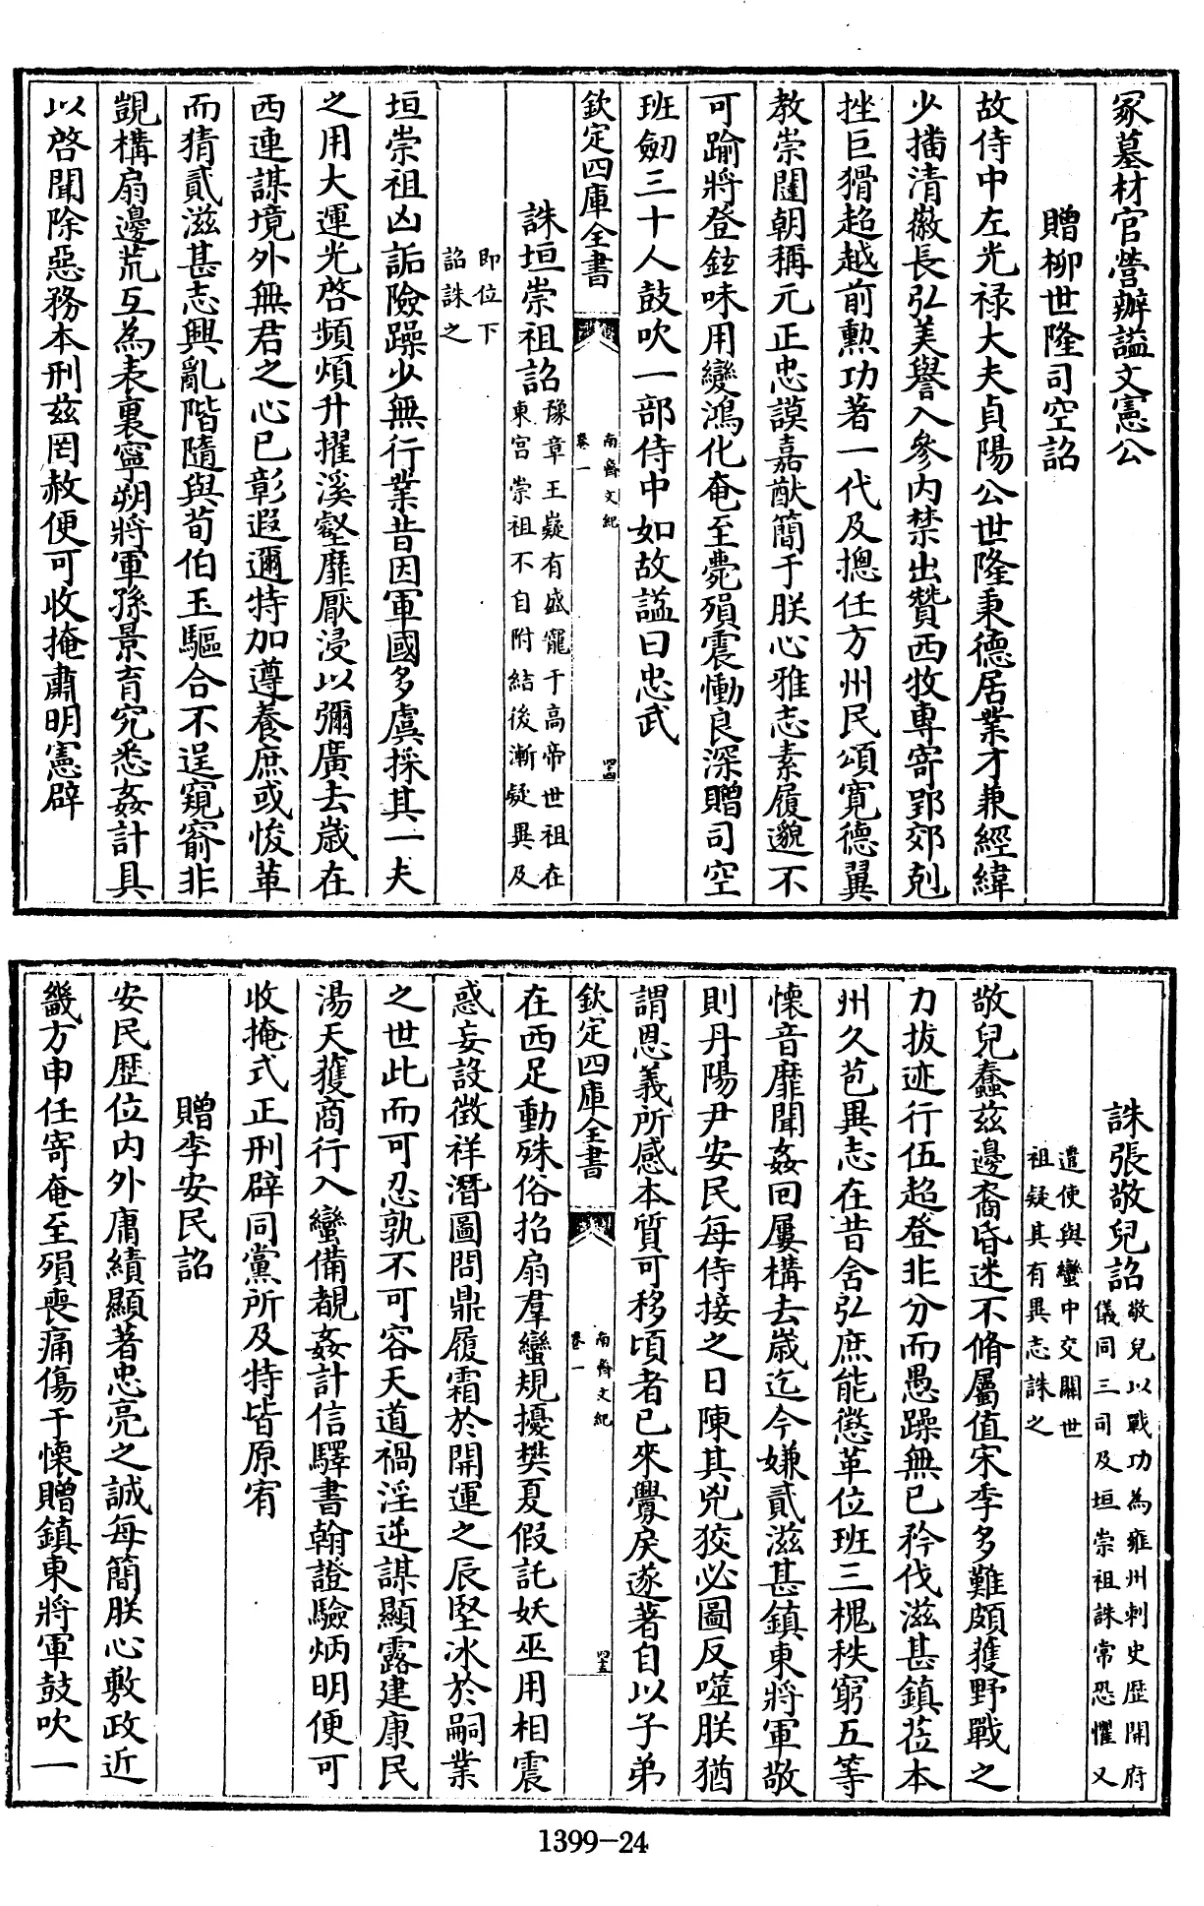 冢墓材官營辦謚文憲公
贈柳世隆司空詔
故侍中左光祿大夫貞陽公世隆秉德居業才兼經緯
少播清徽長弘美譽入參内禁出贊西牧専寄郢郊剋
挫巨猾超越前勲功著一代及摠任方州民頌寛德翼
教崇闥朝稱元正忠謨嘉猷簡于朕心雅志素履邈不
可踰將登鉉味用變鴻化奄至薨殞震慟良深贈司空
班劒三十人鼓吹一部侍中如故謚曰忠武
欽定四庫全書
南齊文紀
卷一
四十四
誅垣崇祖詔
豫章王嶷有盛寵于高帝世祖在
東宫崇祖不自附結後漸疑異及
即位下
詔誅之
垣崇祖凶詬險躁少無行業昔因軍國多虞採其一夫
之用大運光啓頻煩升擢溪壑靡厭浸以彌廣去歳在
西連謀境外無君之心已彰遐邇特加遵養庶或悛革
而猜貳滋甚志興亂階隨與荀伯玉驅合不逞窺窬非
覬構扇邊荒互為表裏寧朔將軍孫景育究悉姦計具
以啓聞除惡務本刑兹罔赦便可收掩肅明憲辟
誅張敬兒詔
敬兒以戰功為雍州刺史歴開府
儀同三司及垣崇祖誅常恐懼又
遣使與蠻中交關世
祖疑其有異志誅之
敬兒蠢兹邊裔昏迷不脩屬值宋季多難頗獲野戰之
力拔迹行伍超登非分而愚躁無已矜伐滋甚鎮莅本
州久苞異志在昔含弘庶能懲革位班三槐秩窮五等
懐音靡聞姦回屢構去歳迄今嫌貳滋甚鎮東將軍敬
則丹陽尹安民每侍接之日陳其兇狡必圖反噬朕猶
謂恩義所感本質可移頃者已來釁戾遂著自以子弟
欽定四庫全書
南齊文紀
卷一
四十五
在西足動殊俗招扇羣蠻規擾樊夏假託妖巫用相震
惑妄設徴祥潛圖問鼎履霜於開運之辰堅冰於嗣業
之世此而可忍孰不可容天道禍淫逆謀顯露建康民
湯天獲商行入蠻備覩姦計信驛書翰證驗炳明便可
收掩式正刑辟同黨所及特皆原宥
贈李安民詔
安民歴位内外庸績顯著忠亮之誠每簡朕心敷政近
畿方申任寄奄至殞喪痛傷于懐贈鎮東將軍鼓吹一
1399-24